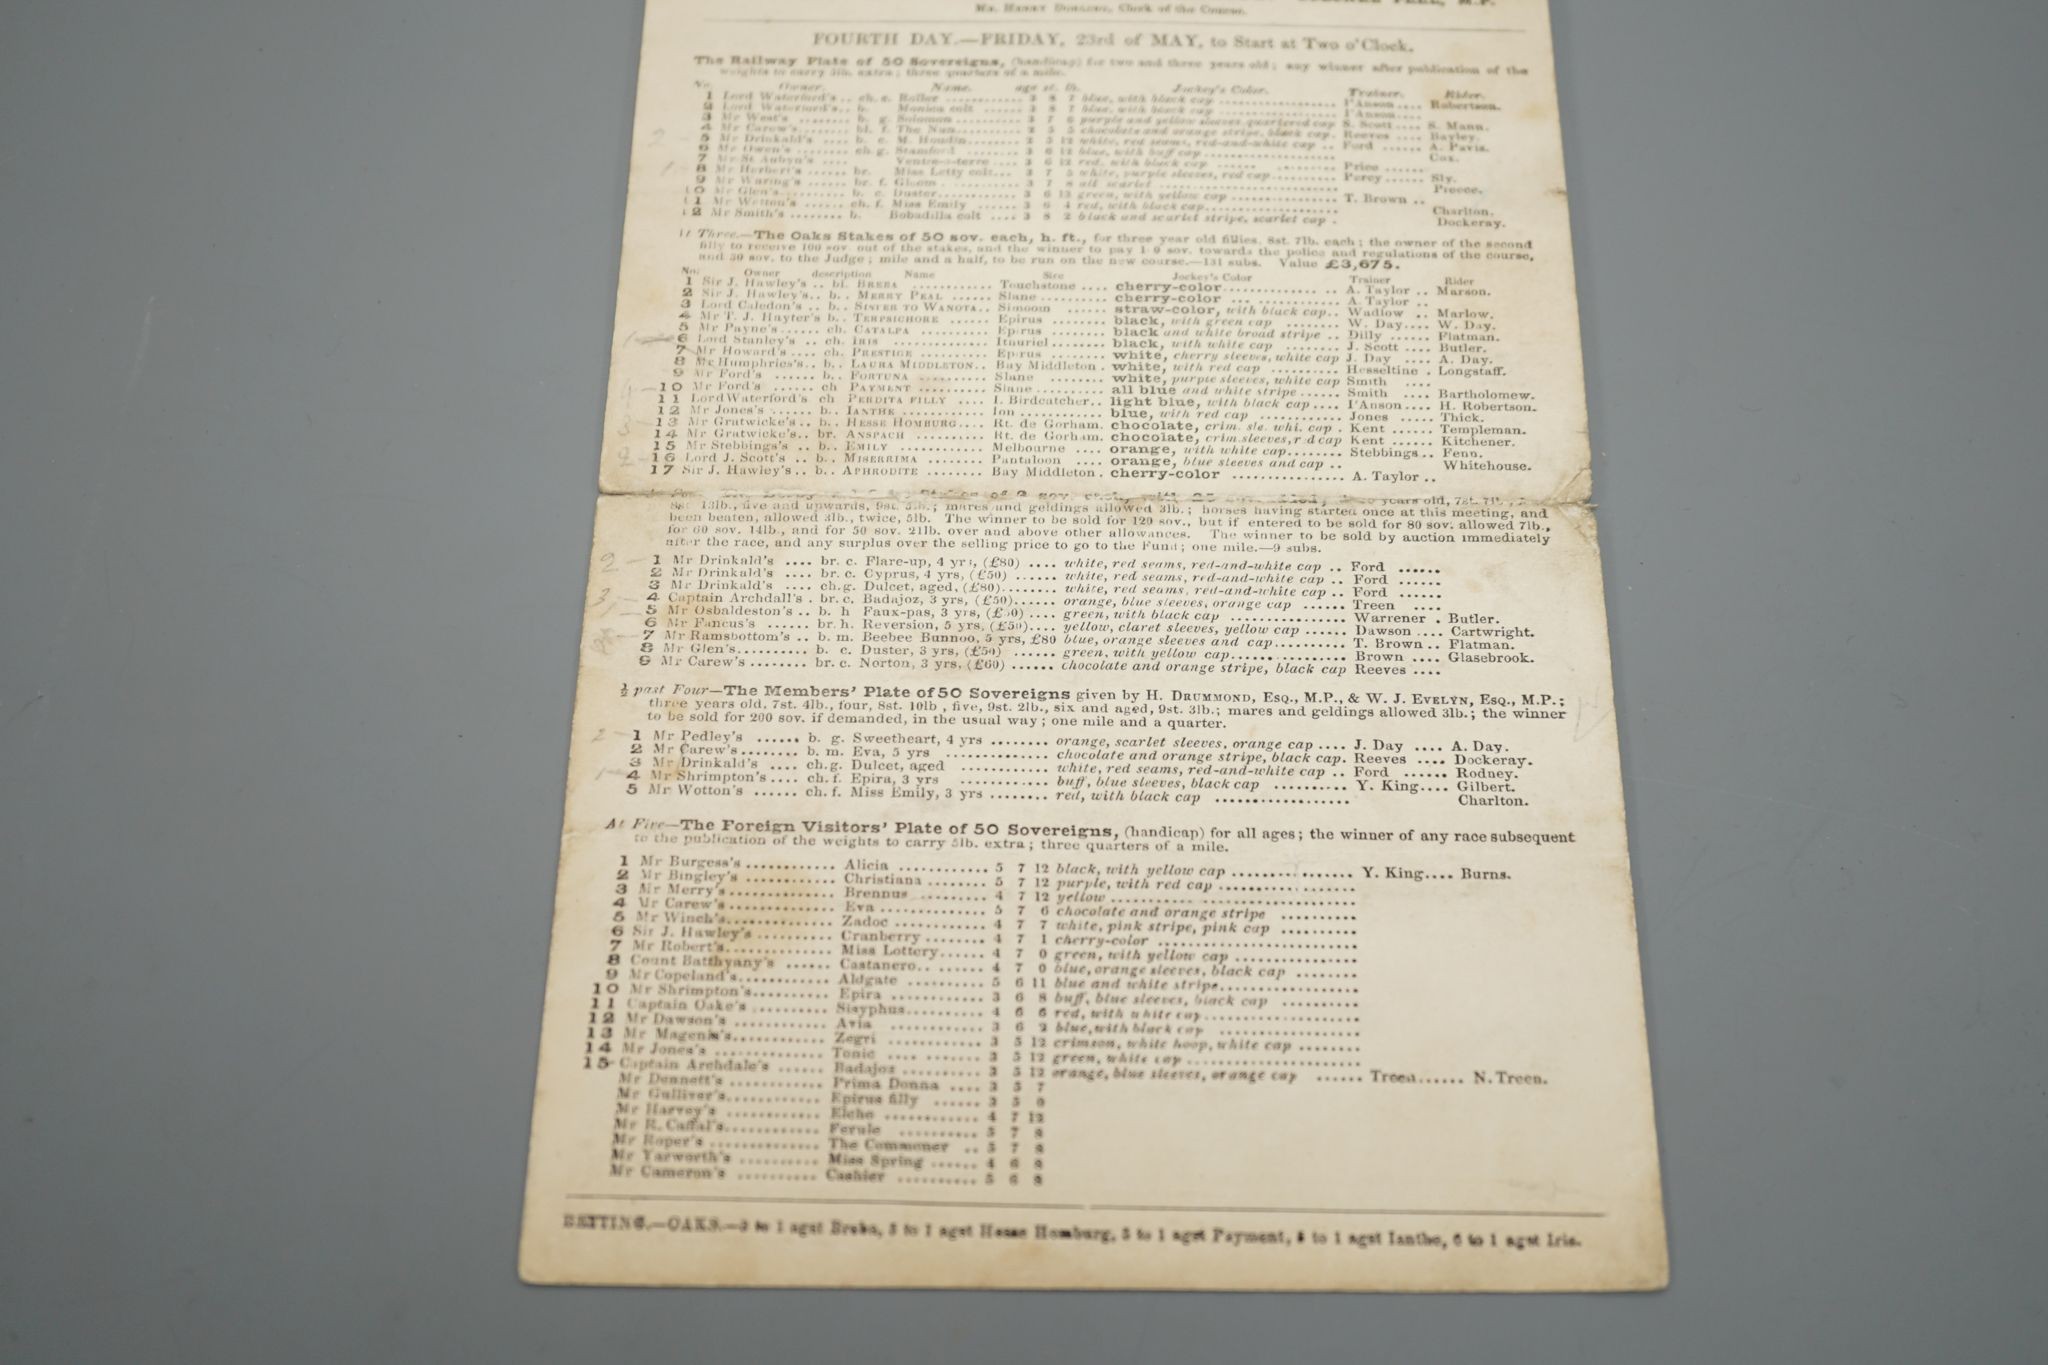 COLONEL PEEL, M.P.
Mr. Henry Dorling, Clerk of the Course.
FOURTH DAY.—FRIDAY, 23rd of MAY, to Start at Two o'Clock.
The Railway Plate of 50 Sovereigns, (handicap) for two and three years old; any winner after publication of the
weights to carry 5lb. extra; three quarters of a mile.
No. Owner. Name. age st. lb. Jockey's Color. Trainer. Rider.
1 Lord Waterford's .. ch. c. Roller ............ 3 8 7 blue, with black cap .................. I'Anson .... Robertson.
2 Lord Waterford's.. b. Monica colt ...... 3 8 7 blue, with black cap .................. I'Anson ....
3 Mr West's ........ b. g. Solomon .......... 3 7 6 purple and yellow sleeves quartered cap S. Scott .... S. Mann.
4 Mr Carew's........ bl. f. The Nun .......... 2 5 5 chocolate and orange stripe, black cap. Reeves .... Bayley.
5 Mr Drinkald's .... b. c. M. Houdin........ 2 5 12 white, red seams, red-and-white cap .. Ford ...... A. Pavis.
6 Mr Owen's ........ ch.g. Stamford ........ 3 6 12 blue, with buff cap .................. Cox.
7 Mr St Aubyn's .... Ventre-a-terre .... 3 6 12 red, with black cap ...... Price ......
8 Mr Herbert's ...... br. Miss Letty colt... 3 7 5 white, purple sleeves, red cap.......... Percy ...... Sly.
9 Mr Waring's ...... br. f. Gloom .......... 3 7 8 all scarlet .......................... Preece.
10 Mr Glen's ........ b. c. Duster............ 3 6 12 green, with yellow cap .............. T. Brown ..
11 Mr Wotton's ...... ch. f. Miss Emily ...... 3 6 4 red, with black cap.................. Charlton.
12 Mr Smith's........ b. Bobadilla colt .... 3 8 2 black and scarlet stripe, scarlet cap . Dockeray.
At Three.—The Oaks Stakes of 50 sov. each, h. ft., for three year old fillies, 8st. 7lb. each; the owner of the second
filly to receive 100 sov. out of the stakes, and the winner to pay 100 sov. towards the police and regulations of the course,
and 30 sov. to the Judge; mile and a half, to be run on the new course.—131 subs. Value £3,675.
No. Owner description Name Sire Jockey's Color Trainer Rider
1 Sir J. Hawley's .. bl. BREBA ............ Touchstone .... cherry-color................ A. Taylor .. Marson.
2 Sir J. Hawley's.. b. . MERRY PEAL ...... Slane .......... cherry-color ... ............ A. Taylor ..
3 Lord Caledon's .. b. . SISTER TO WANOTA.. Simoom ...... straw-color, with black cap.. Wadlow .. Marlow.
4 Mr T. J. Hayter's b. . TERPSICHORE ...... Epirus ........ black, with green cap ........ W. Day.... W. Day.
5 Mr Payne's...... ch. CATALPA .......... Epirus ........ black and white broad stripe .. Dilly ...... Flatman.
1 — 6 Lord Stanley's .. ch. IRIS .............. Ithuriel........ black, with white cap ........ J. Scott .... Butler.
7 Mr Howard's .... ch. PRESTIGE .......... Epirus ........ white, cherry sleeves, white cap J. Day .... A. Day.
8 Mr Humphries's.. b. . LAURA MIDDLETON.. Bay Middleton . white, with red cap .......... Hesseltine . Longstaff.
9 Mr Ford's ...... b. . FORTUNA .......... Slane ........ white, purple sleeves, white cap Smith ....
4 — 10 Mr Ford's ...... ch PAYMENT .......... Slane .......... all blue and white stripe...... Smith .... Bartholomew.
11 Lord Waterford's ch PERDITA FILLY .... I. Birdcatcher.. light blue, with black cap .... I'Anson .... H. Robertson.
12 Mr Jones's ...... b. . IANTHE ............ Ion ............ blue, with red cap ............ Jones ...... Thick.
3 — 13 Mr Gratwicke's .. b. . HESSE HOMBURG.... Rt. de Gorham. chocolate, crim. sle. whi. cap . Kent ...... Templeman.
14 Mr Gratwicke's.. br. ANSPACH .......... Rt. de Gorham. chocolate, crim.sleeves, red cap Kent ...... Kitchener.
15 Mr Stebbings's .. b. . EMILY ............ Melbourne .... orange, with white cap........ Stebbings .. Fenn.
2 — 16 Lord J. Scott's .. b. . MISERRIMA ........ Pantaloon .... orange, blue sleeves and cap .. Whitehouse.
17 Sir J. Hawley's .. b. . APHRODITE ........ Bay Middleton . cherry-color ................ A. Taylor ..
years old, 7st. 7lb.,
8st 13lb., five and upwards, 9st. 5lb.; mares and geldings allowed 3lb.; horses having started once at this meeting, and
been beaten, allowed 3lb., twice, 5lb. The winner to be sold for 120 sov., but if entered to be sold for 80 sov. allowed 7lb.,
for 60 sov. 14lb., and for 50 sov. 21lb. over and above other allowances. The winner to be sold by auction immediately
after the race, and any surplus over the selling price to go to the Fund; one mile.—9 subs.
2 — 1 Mr Drinkald's .... br. c. Flare-up, 4 yrs, (£80) .... white, red seams, red-and-white cap .. Ford ......
2 Mr Drinkald's .... br. c. Cyprus, 4 yrs, (£50) ...... white, red seams, red-and-white cap .. Ford ......
3 Mr Drinkald's .... ch.g. Dulcet, aged, (£80)........ white, red seams, red-and-white cap .. Ford ......
3 — 4 Captain Archdall's . br. c. Badajoz, 3 yrs, (£50)...... orange, blue sleeves, orange cap ...... Treen ....
5 Mr Osbaldeston's .. b. h Faux-pas, 3 yrs, (£50).... green, with black cap ................ Warrener . Butler.
6 Mr Fancus's ...... br. h. Reversion, 5 yrs, (£50).... yellow, claret sleeves, yellow cap ...... Dawson .... Cartwright.
7 Mr Ramsbottom's .. b. m. Beebee Bunnoo, 5 yrs, £80 blue, orange sleeves and cap.......... T. Brown .. Flatman.
8 Mr Glen's.......... b. c. Duster, 3 yrs, (£50) ...... green, with yellow cap................ Brown .... Glasebrook.
9 Mr Carew's ........ br. c. Norton, 3 yrs, (£60) ...... chocolate and orange stripe, black cap Reeves ....
½ past Four—The Members' Plate of 50 Sovereigns given by H. DRUMMOND, ESQ., M.P., & W. J. EVELYN, ESQ., M.P.;
three years old, 7st. 4lb., four, 8st. 10lb , five, 9st. 2lb., six and aged, 9st. 3lb.; mares and geldings allowed 3lb.; the winner
to be sold for 200 sov. if demanded, in the usual way; one mile and a quarter.
2 — 1 Mr Pedley's ...... b. g. Sweetheart, 4 yrs ........ orange, scarlet sleeves, orange cap .... J. Day .... A. Day.
2 Mr Carew's........ b. m. Eva, 5 yrs ............ chocolate and orange stripe, black cap. Reeves .... Dockeray.
3 Mr Drinkald's .... ch.g. Dulcet, aged ............ white, red seams, red-and-white cap .. Ford ...... Rodney.
1 — 4 Mr Shrimpton's .... ch. f. Epira, 3 yrs ............ buff, blue sleeves, black cap .......... Y. King.... Gilbert.
5 Mr Wotton's ...... ch. f. Miss Emily, 3 yrs ........ red, with black cap .................. Charlton.
At Five—The Foreign Visitors' Plate of 50 Sovereigns, (handicap) for all ages; the winner of any race subsequent
to the publication of the weights to carry 5lb. extra; three quarters of a mile.
1 Mr Burgess's ............ Alicia ............ 5 7 12 black, with yellow cap ................ Y. King.... Burns.
2 Mr Bingley's ............ Christiana ........ 5 7 12 purple, with red cap ..................
3 Mr Merry's .............. Brennus .......... 4 7 12 yellow ................................
4 Mr Carew's .............. Eva .............. 5 7 6 chocolate and orange stripe ..........
5 Mr Winch's.............. Zadoc ............ 4 7 7 white, pink stripe, pink cap ..........
6 Sir J. Hawley's .......... Cranberry ........ 4 7 1 cherry-color ..........................
7 Mr Robert's.............. Miss Lottery...... 4 7 0 green, with yellow cap ................
8 Count Batthyany's ...... Castanero.. ...... 4 7 0 blue, orange sleeves, black cap ........
9 Mr Copeland's............ Aldgate .......... 5 6 11 blue and white stripe..................
10 Mr Shrimpton's.......... Epira ............ 3 6 8 buff, blue sleeves, black cap ..........
11 Captain Oake's .......... Sisyphus.......... 4 6 6 red, with white cap....................
12 Mr Dawson's ............ Avia ............ 3 6 2 blue, with black cap ..................
13 Mr Magenis's............ Zegri ............ 3 5 12 crimson, white hoop, white cap ........
14 Mr Jones's .............. Tonic .... ........ 3 5 12 green, white cap ......................
15 Captain Archdale's ...... Badajoz .......... 3 5 12 orange, blue sleeves, orange cap ...... Treen...... N. Treen.
Mr Dennett's ............ Prima Donna .... 3 5 7
Mr Gulliver's............ Epirus filly ...... 3 5 0
Mr Harvey's ............ Elcho ............ 4 7 12
Mr R. Caffal's............ Ferule .......... 5 7 8
Mr Roper's .............. The Commoner .. 5 7 8
Mr Yarworth's .......... Miss Spring ...... 4 6 8
Mr Cameron's .......... Cashier .......... 5 6 8
BETTING.—OAKS.—3 to 1 agst Breba, to 1 agst Hesse Homburg, 5 to 1 agst Payment, to 1 agst Ianthe, 6 to 1 agst Iris.